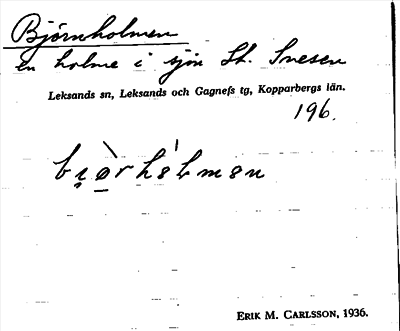 Björnholmen
en holme i sjön St. Snesen
Leksands sn, Leksands och Gagnefs tg, Kopparbergs län.
196.
ERIK M. CARLSSON, 1936.